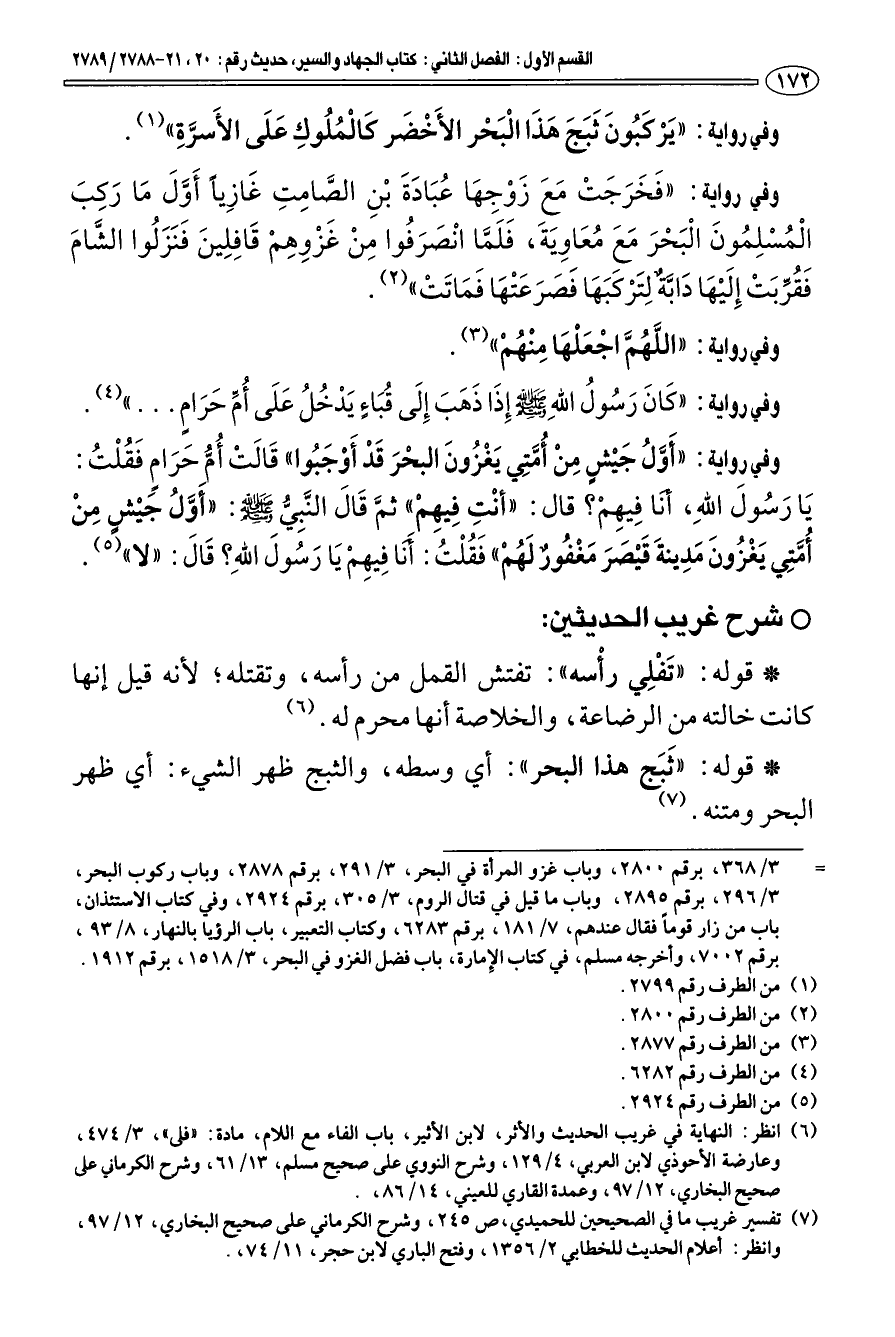 القسم الأول: الفصل الثاني: كتاب الجهاد والسير، حديث رقم: ٢٠، ٢١-٢٧٨٨/ ٢٧٨٩
١٧٢
وفي رواية: «يَرْكَبُونَ ثَبَجَ هَذَا الْبَحْرِ الأَخْضَرِ كَالْمُلُوكِ عَلَى الأَسرَّةِ»(١).
وفي رواية: «فَخَرَجَتْ مَعَ زَوْجِهَا عُبَادَةَ بْنِ الصَّامِتِ غَازِياً أَوَّلَ مَا رَكِبَ
الْمُسْلِمُونَ الْبَحْرَ مَعَ مُعَاوِيَةَ، فَلَمَّا انْصَرَفُوا مِنْ غَزْوِهِمْ قَافِلِينَ فَنَزَلُوا الشَّامَ
فَقُرِّبَتْ إِلَيْهَا دَابَّةٌ لِتَرْكَبَهَا فَصَرَعَتْهَا فَمَاتَتْ»(٢).
وفي رواية: «اللَّهُمَّ اجْعَلْهَا مِنْهُمْ»(٣).
وفي رواية: «كَانَ رَسُولُ اللهِ ﷺ إِذَا ذَهَبَ إِلَى قُبَاءٍ يَدْخُلُ عَلَى أُمِّ حَرَامٍ...»(٤).
وفي رواية: «أَوَّلُ جَيْشٍ مِنْ أُمَّتِي يَغْزُونَ البحْرَ قَدْ أَوْجَبُوا» قَالَتْ أُمُّ حَرَامٍ فَقُلْتُ:
يَا رَسُولَ اللهِ، أَنَا فِيهِمْ؟ قال: «أنْتِ فِيهِمْ» ثمَّ قَالَ النَّبِيُّ ﷺ: «أَوَّلُ جَيْشٍ مِنْ
أُمَّتِي يَغْزُونَ مَدِينةَ قَيْصَرَ مَغْفُورٌ لَهُمْ» فَقُلْتُ: أَنَا فِيهِمْ يَا رَسُولَ اللهِ؟ قَالَ: «لا»(٥).
○ شرح غريب الحديثين:
* قوله: «تَفْلِي رأْسه»: تفتش القمل من رأسه، وتقتله؛ لأنه قيل إنها
كانت خالته من الرضاعة، والخلاصة أنها محرم له.(٦)
* قوله: «ثَبَج هذا البحر»: أي وسطه، والثبج ظهر الشيء: أي ظهر
البحر ومتنه.(٧)
= ٣/ ٣٦٨، برقم ٢٨٠٠، وباب غزو المرأة في البحر، ٣/ ٢٩١، برقم ٢٨٧٨، وباب ركوب البحر،
٣/ ٢٩٦، برقم ٢٨٩٥، وباب ما قيل في قتال الروم، ٣/ ٣٠٥، برقم ٢٩٢٤، وفي كتاب الاستئذان،
باب من زار قوماً فقال عندهم، ٧/ ١٨١، برقم ٦٢٨٣، وكتاب التعبير، باب الرؤيا بالنهار، ٨/ ٩٣،
برقم ٧٠٠٢، وأخرجه مسلم، في كتاب الإمارة، باب فضل الغزو في البحر، ٣/ ١٥١٨، برقم ١٩١٢.
(١) من الطرف رقم ٢٧٩٩.
(٢) من الطرف رقم ٢٨٠٠.
(٣) من الطرف رقم ٢٨٧٧.
(٤) من الطرف رقم ٦٢٨٢.
(٥) من الطرف رقم ٢٩٢٤.
(٦) انظر: النهاية في غريب الحديث والأثر، لابن الأثير، باب الفاء مع اللام، مادة: «فلى»، ٣/ ٤٧٤،
وعارضة الأحوذي لابن العربي، ٤/ ١٢٩، وشرح النووي على صحيح مسلم، ١٣/ ٦١، وشرح الكرماني على
صحيح البخاري، ١٢/ ٩٧، وعمدة القاري للعيني، ١٤/ ٨٦، .
(٧) تفسير غريب ما في الصحيحين للحميدي، ص ٢٤٥، وشرح الكرماني على صحيح البخاري، ١٢/ ٩٧،
وانظر: أعلام الحديث للخطابي ٢/ ١٣٥٦، وفتح الباري لابن حجر، ١١/ ٧٤، .